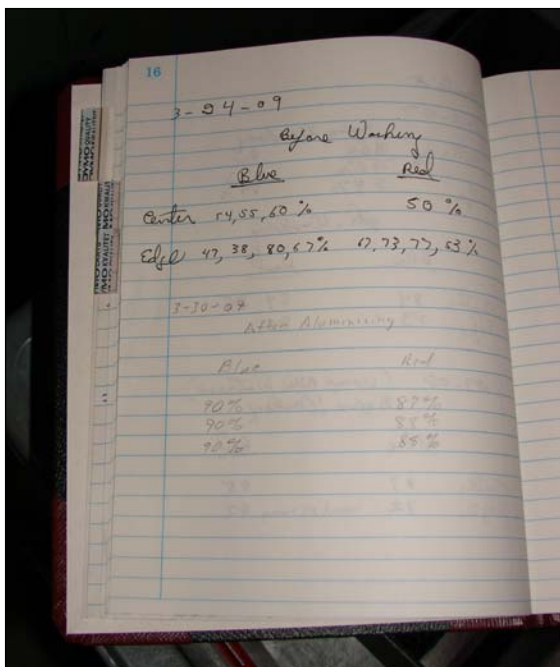 16
3-24-09
Before Washing
Blue Red
Center 54, 55, 60% 50%
Edge 47, 38, 80, 67% 67, 73, 77, 53%
3-30-09
After Aluminizing
Blue Red
90% 87%
90% 88%
90% 88%
DYMO QUALITY